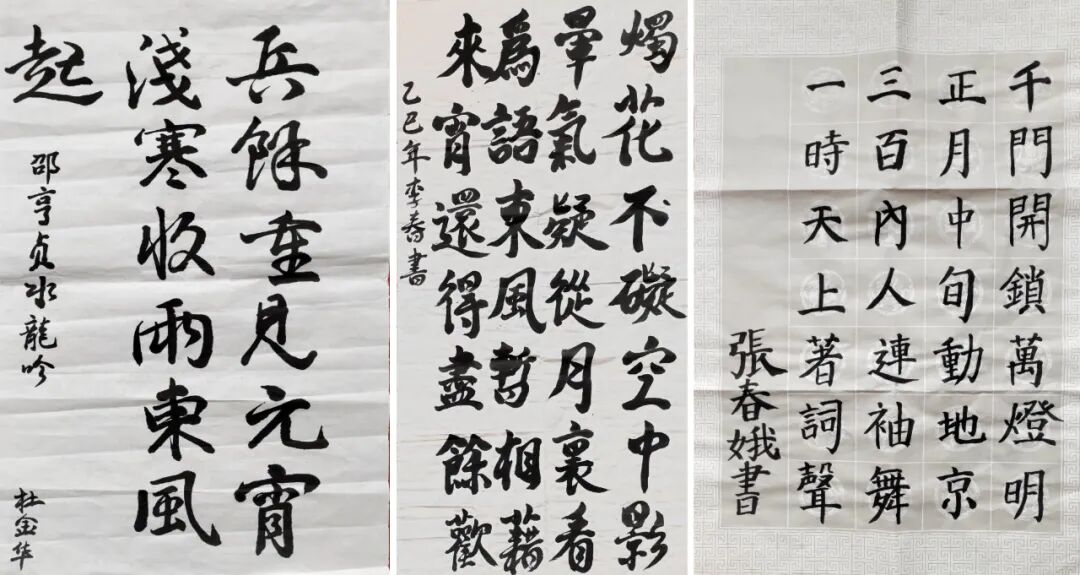 兵餘重見元宵
淺寒收雨東風
起
邵亨贞水龍吟
杜金华
燭花不礙空中影
暈氣疑從月裏看
爲語東風暫相藉
來宵還得盡餘歡
乙巳年李春書
千門開鎖萬燈明
正月中旬動地京
三百內人連袖舞
一時天上著詞聲
張春娥書